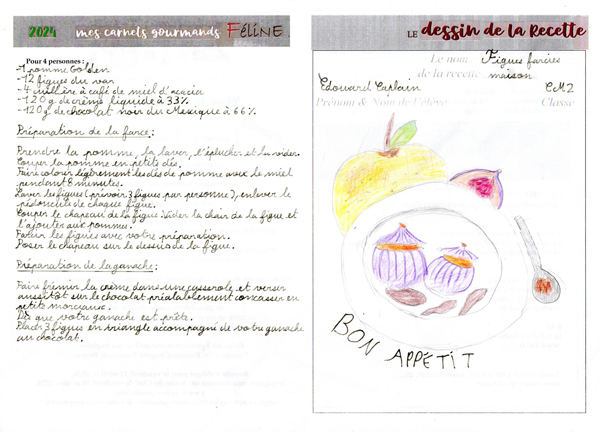 2024 mes carnets gourmands FéLiNE
Pour 4 personnes :
-1 pomme Golden
-12 figues du var
-4 cuillère à café de miel d'acacia
-120g de crème liquide à 33%
-120g de chocolat noir du Mexique à 66%
Préparation de la farce:
Prendre la pomme, la laver, l'éplucher et la vider.
Couper la pomme en petits dés.
Faire colorer légèrement les dés de pomme avec le miel
pendant 8 minutes.
Laver les figues (prévoir 3 figues par personne), enlever le
pédoncule de chaque figue.
Couper le chapeau de la figue. Vider la chair de la figue et
l'ajouter aux pommes.
Farcir les figues avec votre préparation.
Poser le chapeau sur le dessus de la figue.
Préparation de la ganache:
Faire frémir la crème dans une casserole et verser
aussitôt sur le chocolat préalablement concasser en
petits morceaux.
Dès que votre ganache est prête.
Placer 3 figues en triangle accompagné de votre ganache
au chocolat.
LE dessin de la Recette
Le nom Figues farcies
de la recette maison
Edouard Caplain CM2
Prénom & Nom de l'élève Classe
BON APPETIT